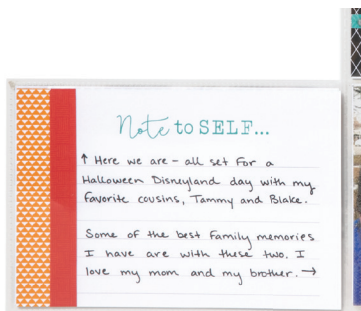 Note to SELF...
↑ Here we are - all set for a
Halloween Disneyland day with my
favorite cousins, Tammy and Blake.
Some of the best family memories
I have are with these two. I
love my mom and my brother. →